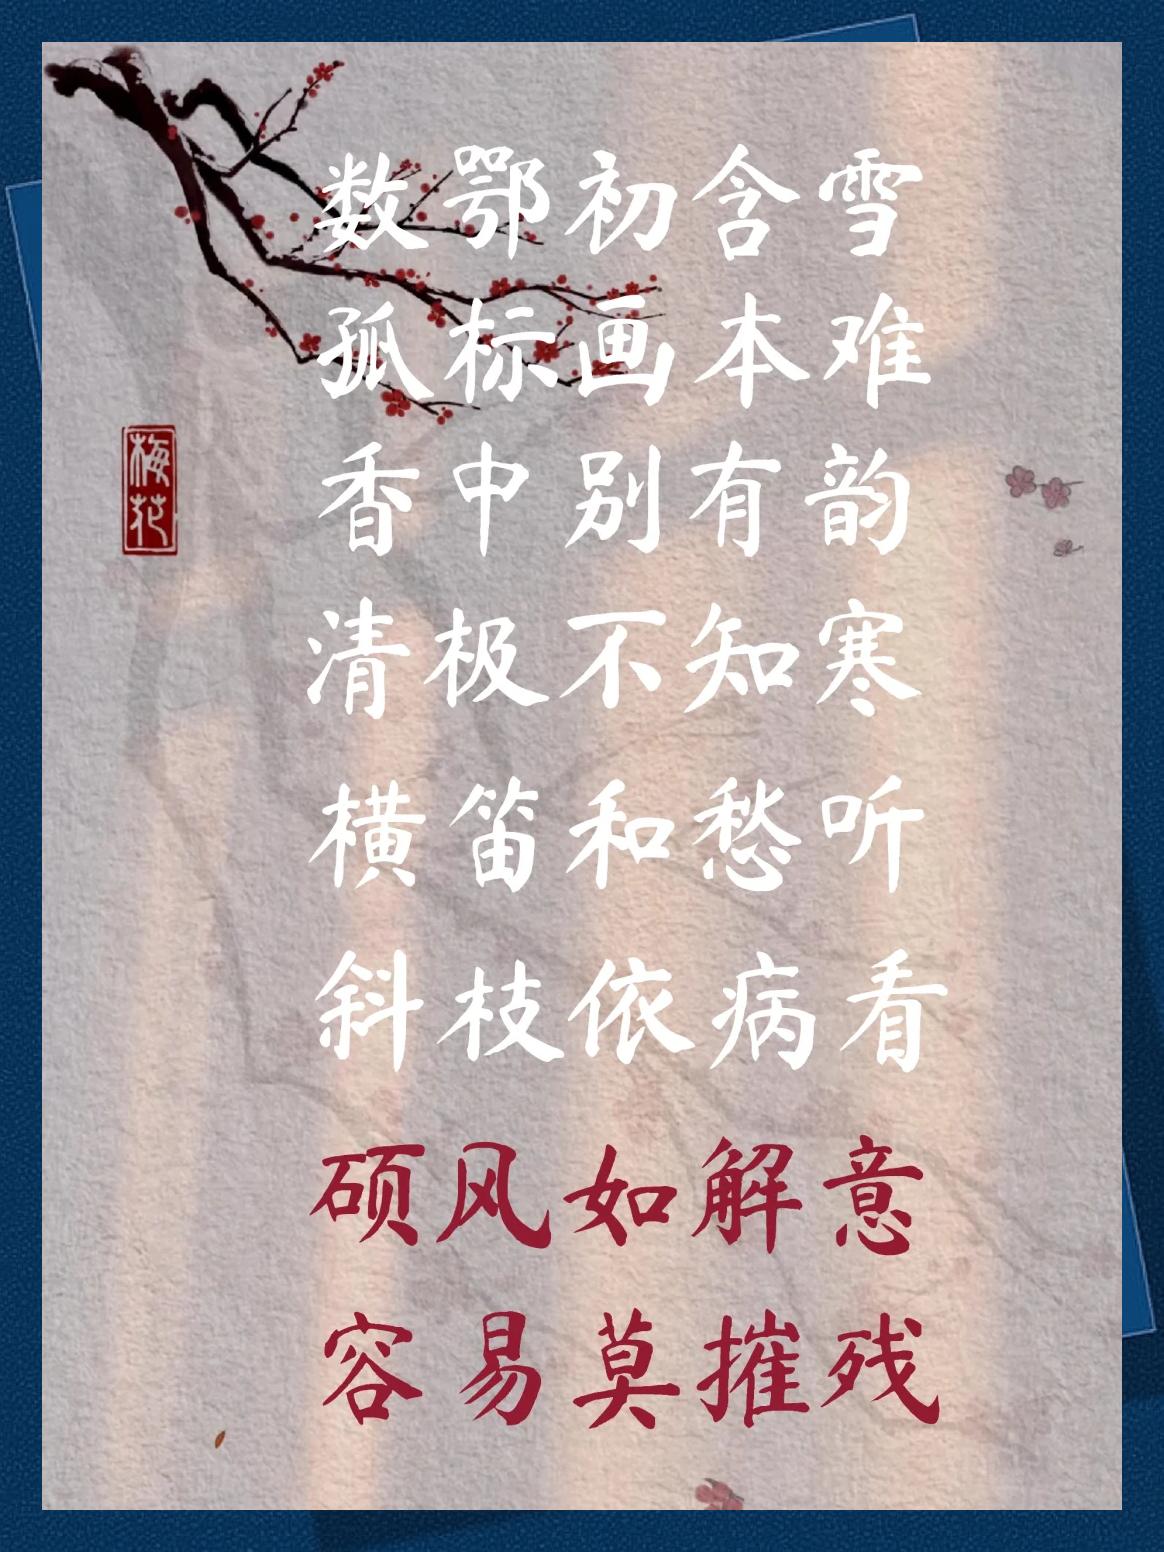 数鄂初含雪
孤标画本难
香中别有韵
清极不知寒
横笛和愁听
斜枝依病看
硕风如解意
容易莫摧残
梅花